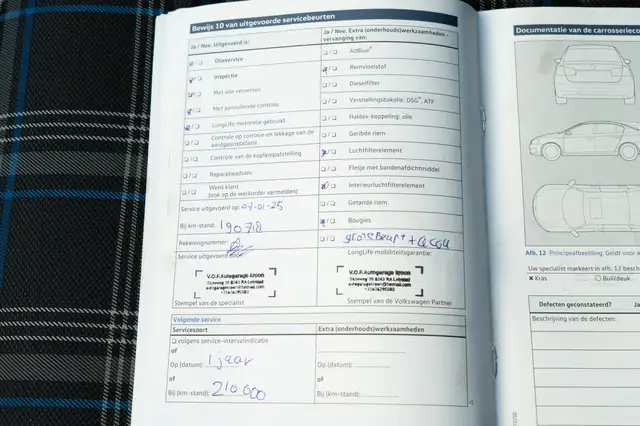 Bewijs 10 van uitgevoerde servicebeurten
Ja / Nee. Uitgevoerd is:
Olieservice
Inspectie
Met olie verversen
Met aanvullende controle
LongLife motorolie gebruikt
Controle op corrosie en lekkage van de aardgasinstallatie.
Controle van de koplampafstelling
Reparatieadvies
Wens klant
(ook op de werkorder vermelden)
Service uitgevoerd op: 07-01-25
Bij km-stand: 190718
Rekeningnummer:
Service uitgevoerd
V.O.F. Autogarage kroon
Stempel van de specialist
Ja / Nee. Extra (onderhouds)werkzaamheden -
vervanging van:
AdBlue®
Remvloeistof
Dieselfilter
Versnellingsbakolie: DSG®, ATF
Haldex-koppeling: olie
Geribde riem
Luchtfilterelement
Flesje met bandenafdichtmiddel
Interieurluchtfilterelement
Getande riem
Bougies
LongLife mobiliteitsgarantie:
V.O.F. Autogarage kroon
Stempel van de Volkswagen Partner
Volgende service
Servicesoort
Extra (onderhouds)werkzaamheden
volgens service-intervalindicatie
of
Op (datum): 1 jaar
of
Bij (km-stand): 210 000
of
Op (datum):
of
Bij (km-stand):
Documentatie van de carrosserieco
Afb. 12 Principeafbeelding. Geldt voor a
Uw specialist markeert in afb. 12 besche
Kras
Buil/deuk
Defecten geconstateerd? Ja
Beschrijving van de defecten: